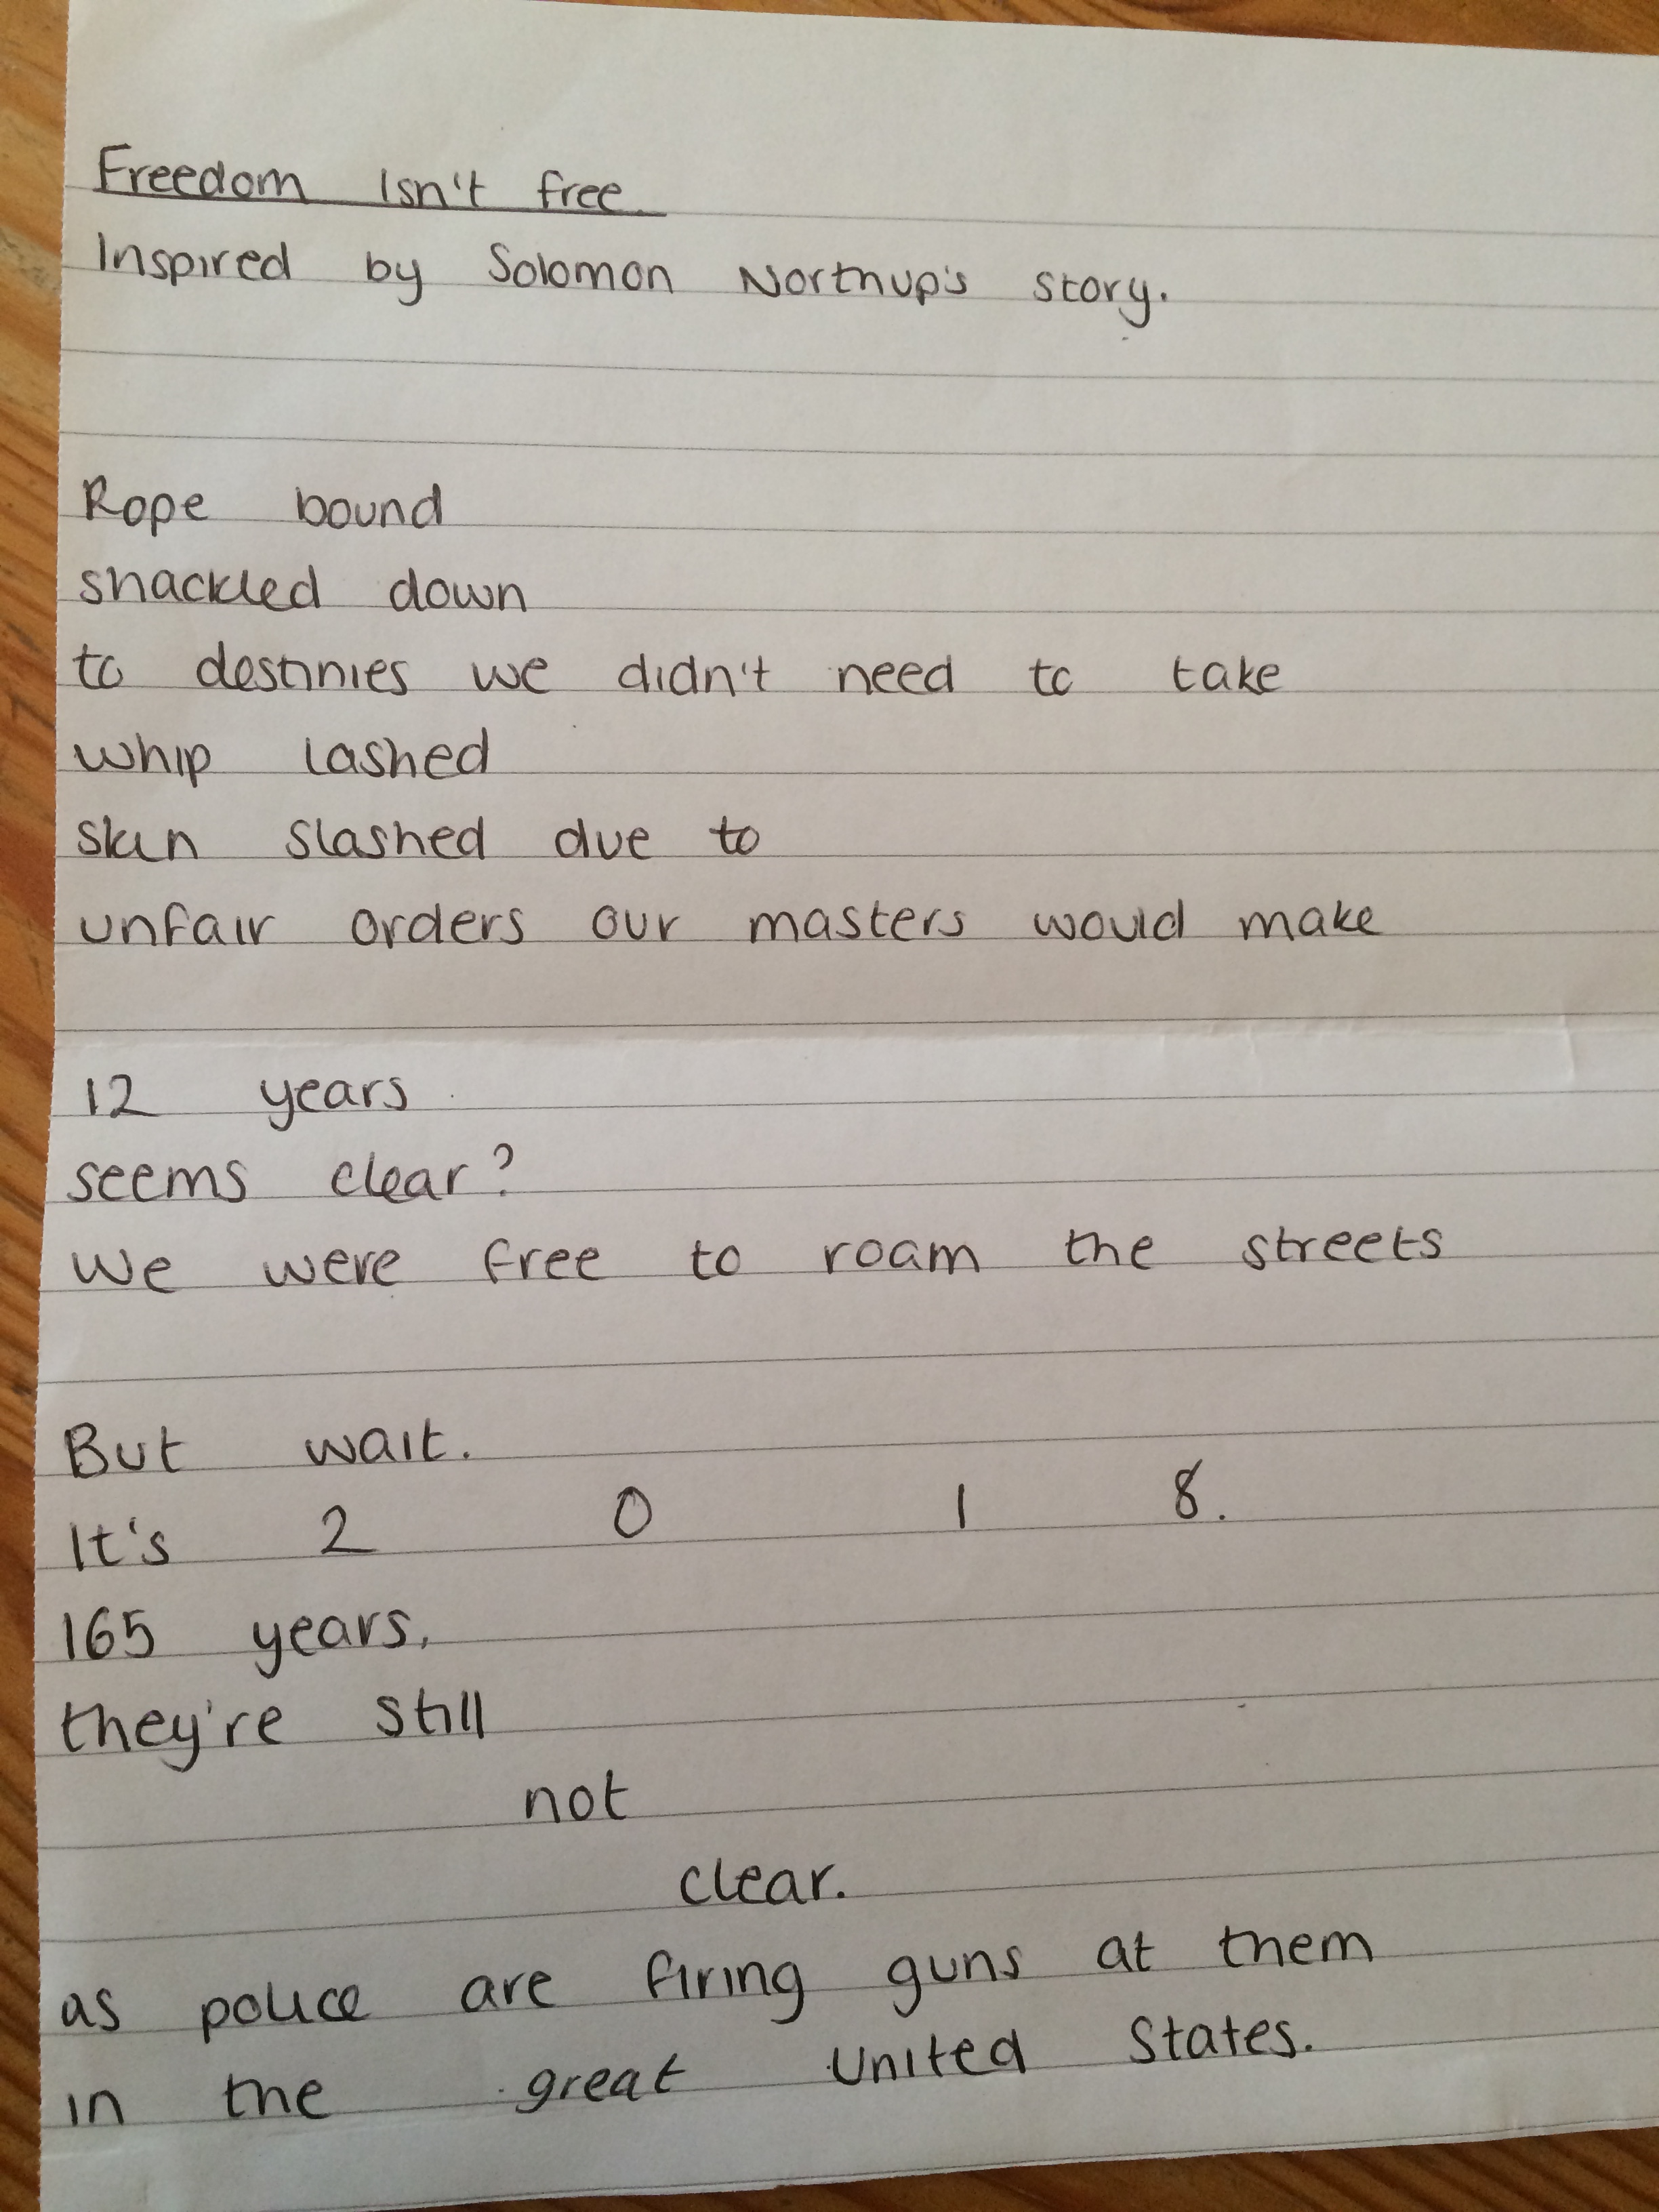 Freedom Isn't free.
Inspired by Solomon Northup's story.
Rope bound
shackled down
to destinies we didn't need to take
whip lashed
skin slashed due to
unfair orders our masters would make
12 years
seems clear?
We were free to roam the streets
But wait.
It's 2 0 1 8.
165 years,
they're still
not
clear.
as police are firing guns at them
in the great United States.